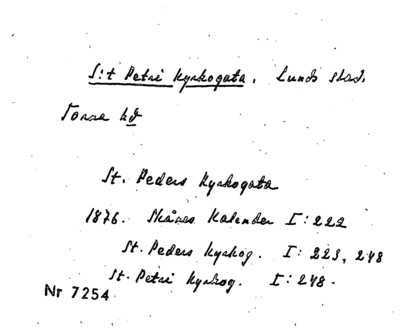 S:t Petri Kyrkogata. Lunds stad.
Torna hd
St. Peders Kyrkogata
1876. Skånes Kalender I: 222
St. Peders Kyrkog. I: 223, 248
St. Petri Kyrkog. I: 248.
Nr 7254